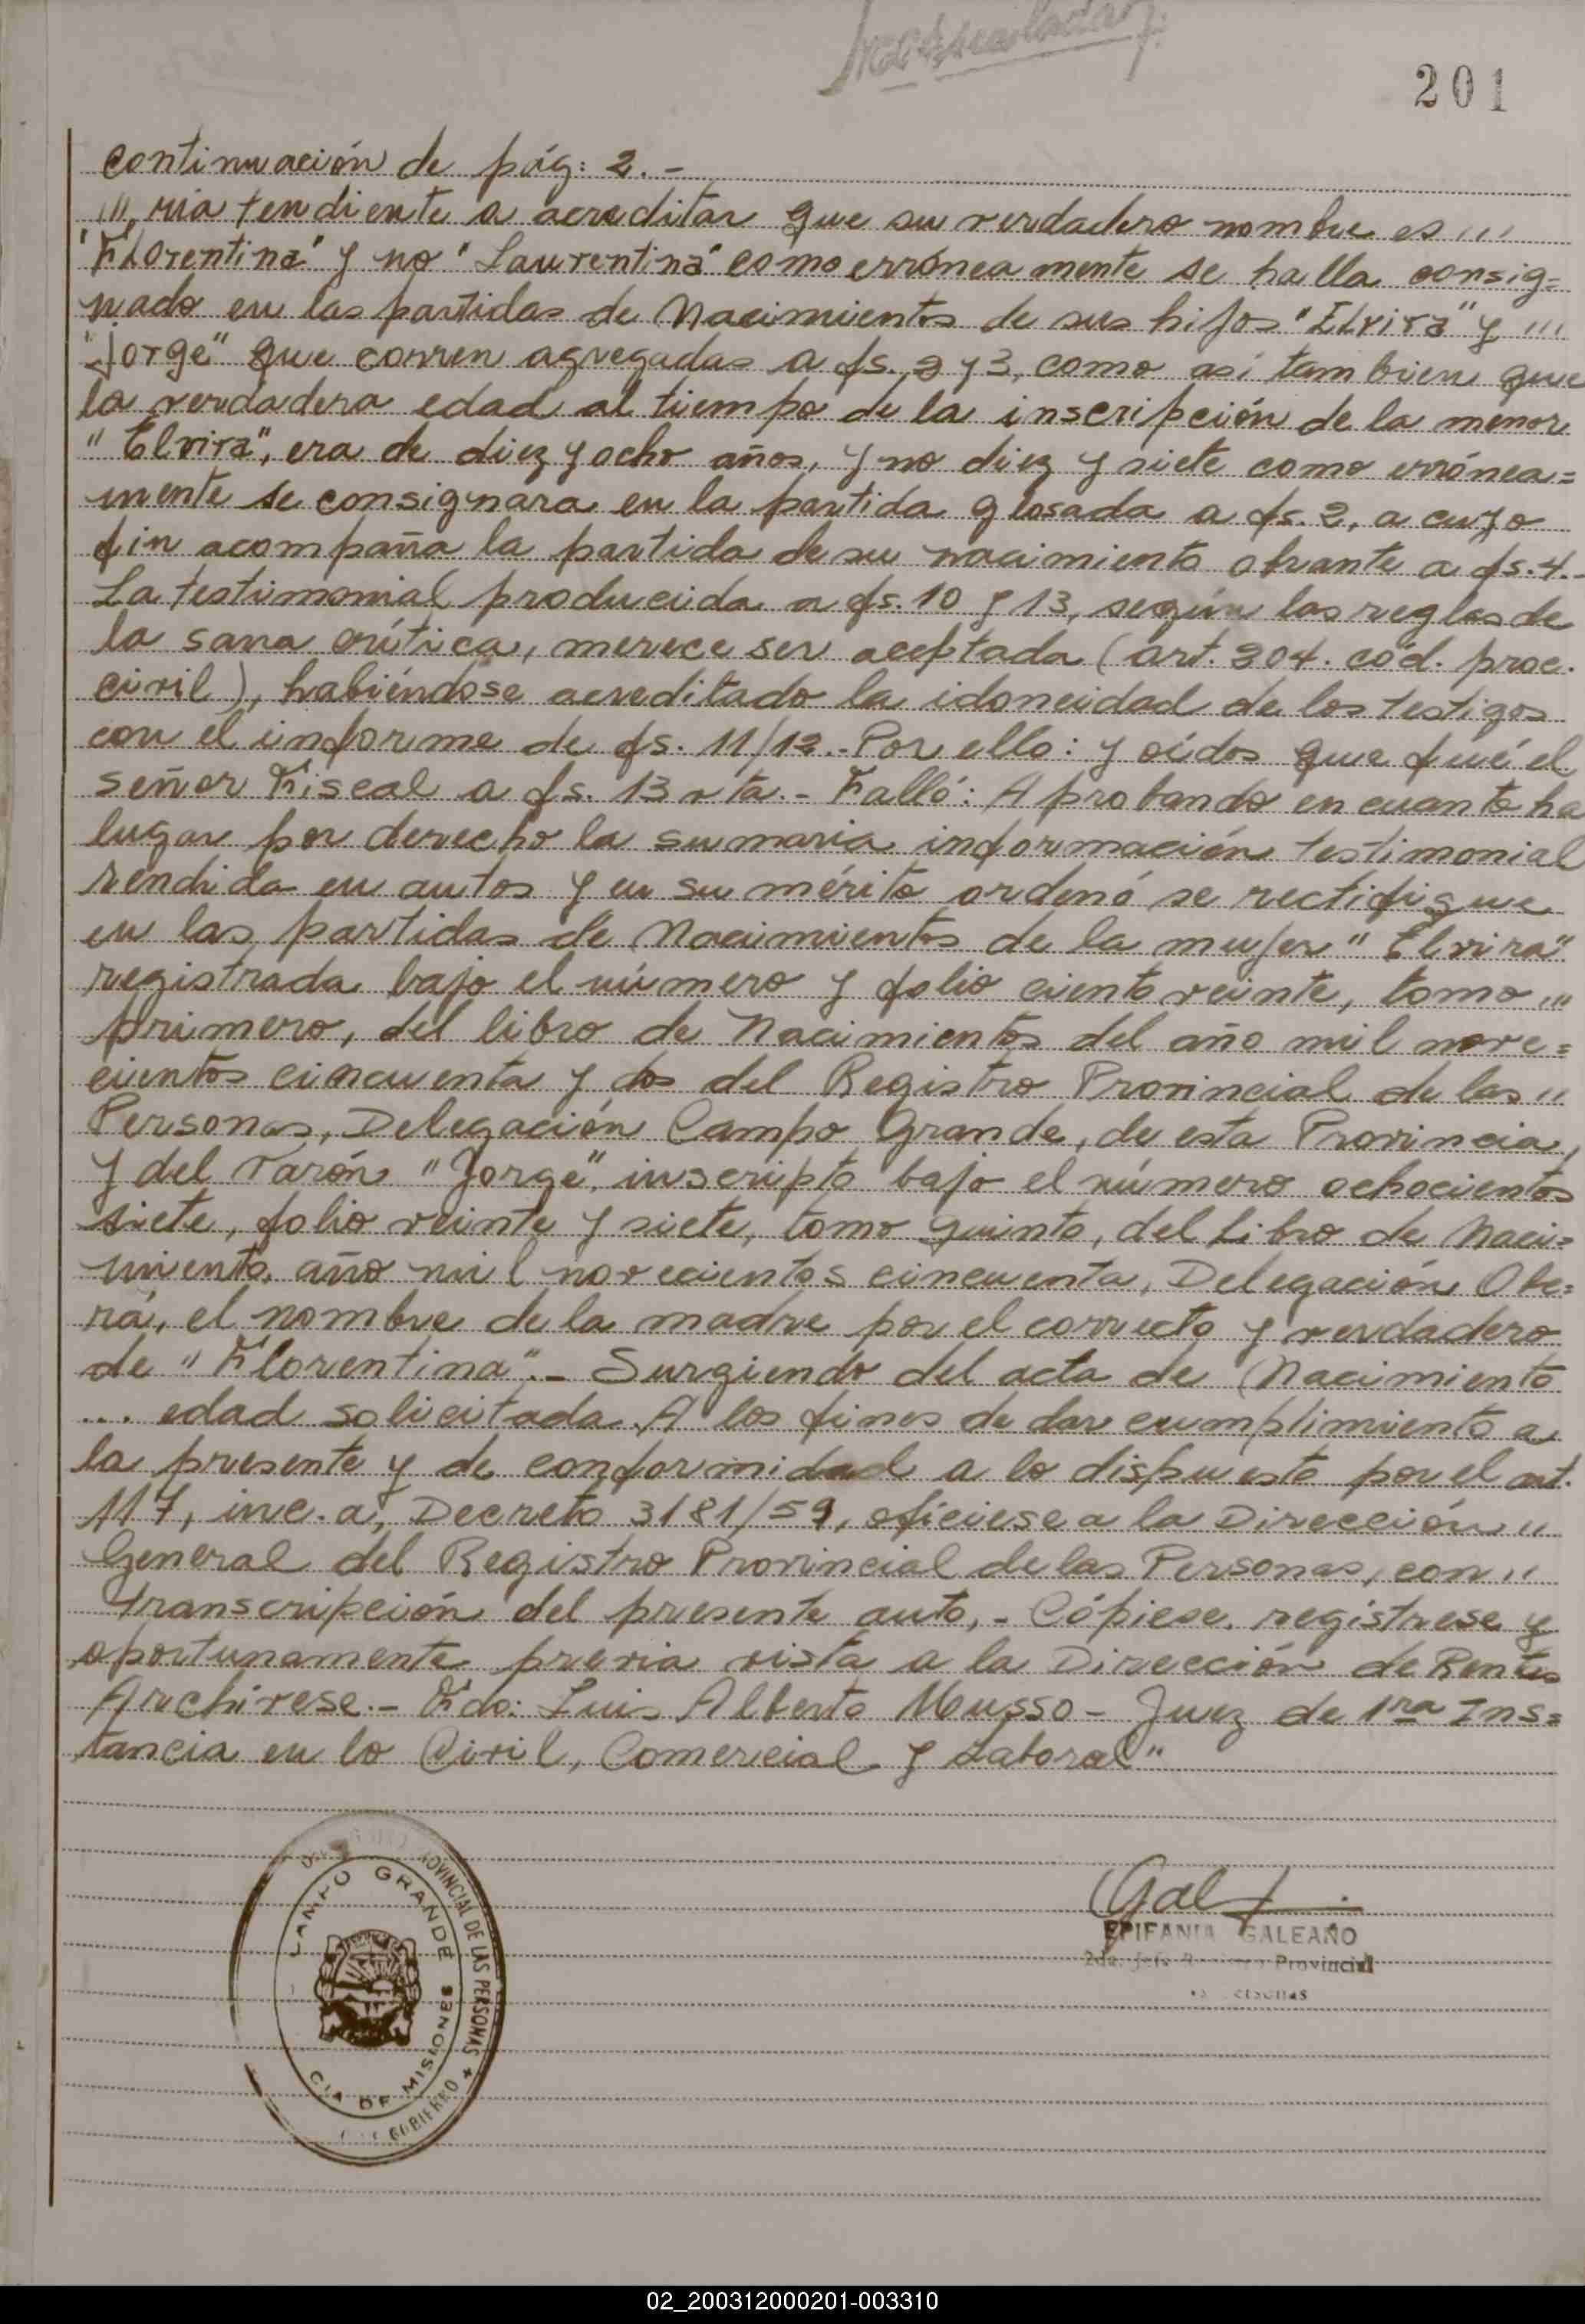 201
continuación de pág: 2.-
''' ria tendiente a acreditar que su verdadero nombre es '''
"Florentina" y no "Laurentina" como errónea mente se halla consig=
nado en las partidas de Nacimientos de sus hijos "Elvira" y '''
"Jorge" que corren agregadas a fs. 2 y 3, como así tambien que
la verdadera edad al tiempo de la inscripción de la menor
"Elvira", era de diez y ocho años, y no diez y siete como errónea=
mente se consignara en la partida glosada a fs. 2, a cuyo
fin acompaña la partida de su nacimiento obrante a fs. 4.-
La testimonial producida a fs. 10 y 13, según las reglas de
la sana crítica, merece ser aceptada (art. 204. cód. proc.
civil), habiéndose acreditado la idoneidad de los testigos
con el informe de fs. 11/12.- Por ello: y oídos que fué el
señor Fiscal a fs. 13 vta.- Falló: Aprobando en cuanto ha
lugar por derecho la sumaria información testimonial
rendida en autos y en su mérito ordenó se rectifique
en las partidas de Nacimientos de la mujer "Elvira"
registrada bajo el número y folio ciento veinte, tomo '''
primero, del libro de Nacimientos del año mil nove=
cientos cincuenta y dos del Registro Provincial de las ''
Personas, Delegación Campo Grande, de esta Provincia,
y del varón "Jorge", inscripto bajo el número ochocientos
siete, folio veinte y siete, tomo quinto, del Libro de Naci=
miento, año mil novecientos cincuenta, Delegación Obe=
rá, el nombre de la madre por el correcto y verdadero
de "Florentina".- Surgiendo del acta de Nacimiento
... edad solicitada. A los fines de dar cumplimiento a
la presente y de conformidad a lo dispuesto por el art.
117, inc. a, Decreto 3181/59, ofíciese a la Dirección ''
General del Registro Provincial de las Personas, con ''
transcripción del presente auto,- Cópiese, regístrese y
oportunamente previa vista a la Dirección de Rentas
Archívese.- Fdo: Luis Alberto Musso - Juez de 1ra Ins=
tancia en lo Civil, Comercial y Laboral"
PROVINCIAL DE LAS PERSONAS
CAMPO GRANDE
CIA DE MISIONES
GOBIERNO
Gal
EPIFANIA GALEANO
2da. Jefe Provincial
02_200312000201-003310